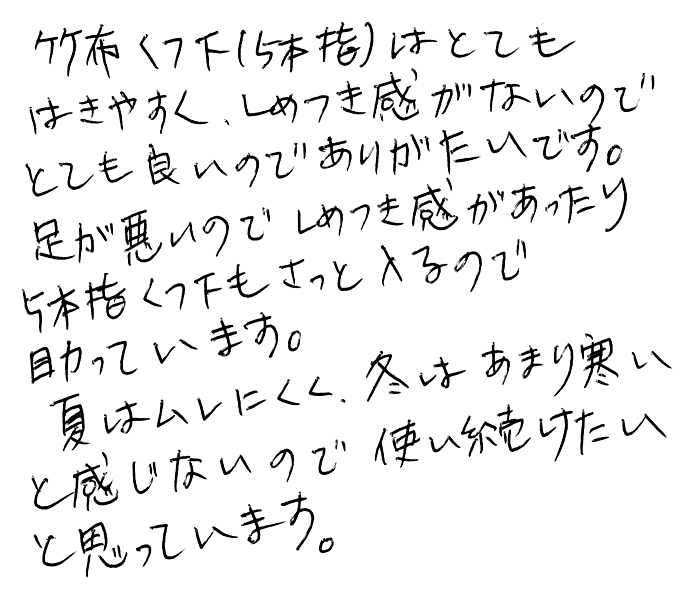 竹布くつ下(5本指)はとても
はきやすく、しめつき感がないので
とても良いのでありがたいです。
足が悪いのでしめつき感があったり
5本指くつ下もさっと入るので
助っています。
夏はムレにくく、冬はあまり寒い
と感じないので使い続けたい
と思っています。